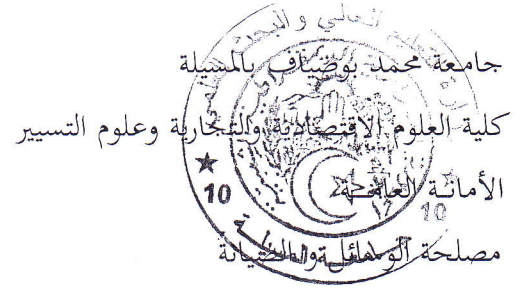 جامعة محمد بوضياف بالمسيلة
كلية العلوم الاقتصادية والتجارية وعلوم التسيير
الأمانة العامة
مصلحة الوسائل والصيانة
10
10